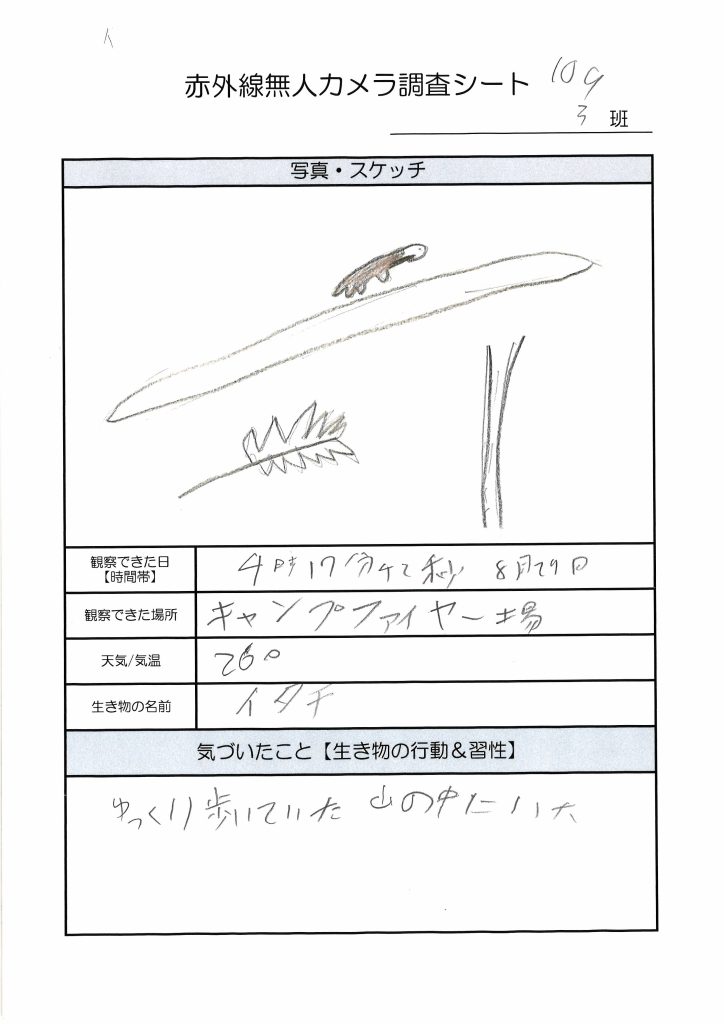 赤外線無人カメラ調査シート
109
3 班
写真・スケッチ
観察できた日
【時間帯】
4時17分42秒 8月29日
観察できた場所
キャンプファイヤー場
天気/気温
26°
生き物の名前
イタチ
気づいたこと【生き物の行動＆習性】
ゆっくり歩いていた 山の中にいた